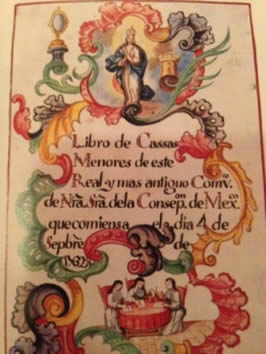 Libro de Cassas
Menores de este
Real y mas antiguo Comvᵗᵒ.
de Nrâ. Srâ. de la Consepᵒⁿ. de Mexᶜᵒ.
que comiensa de dia 4 de
Sepbrê de